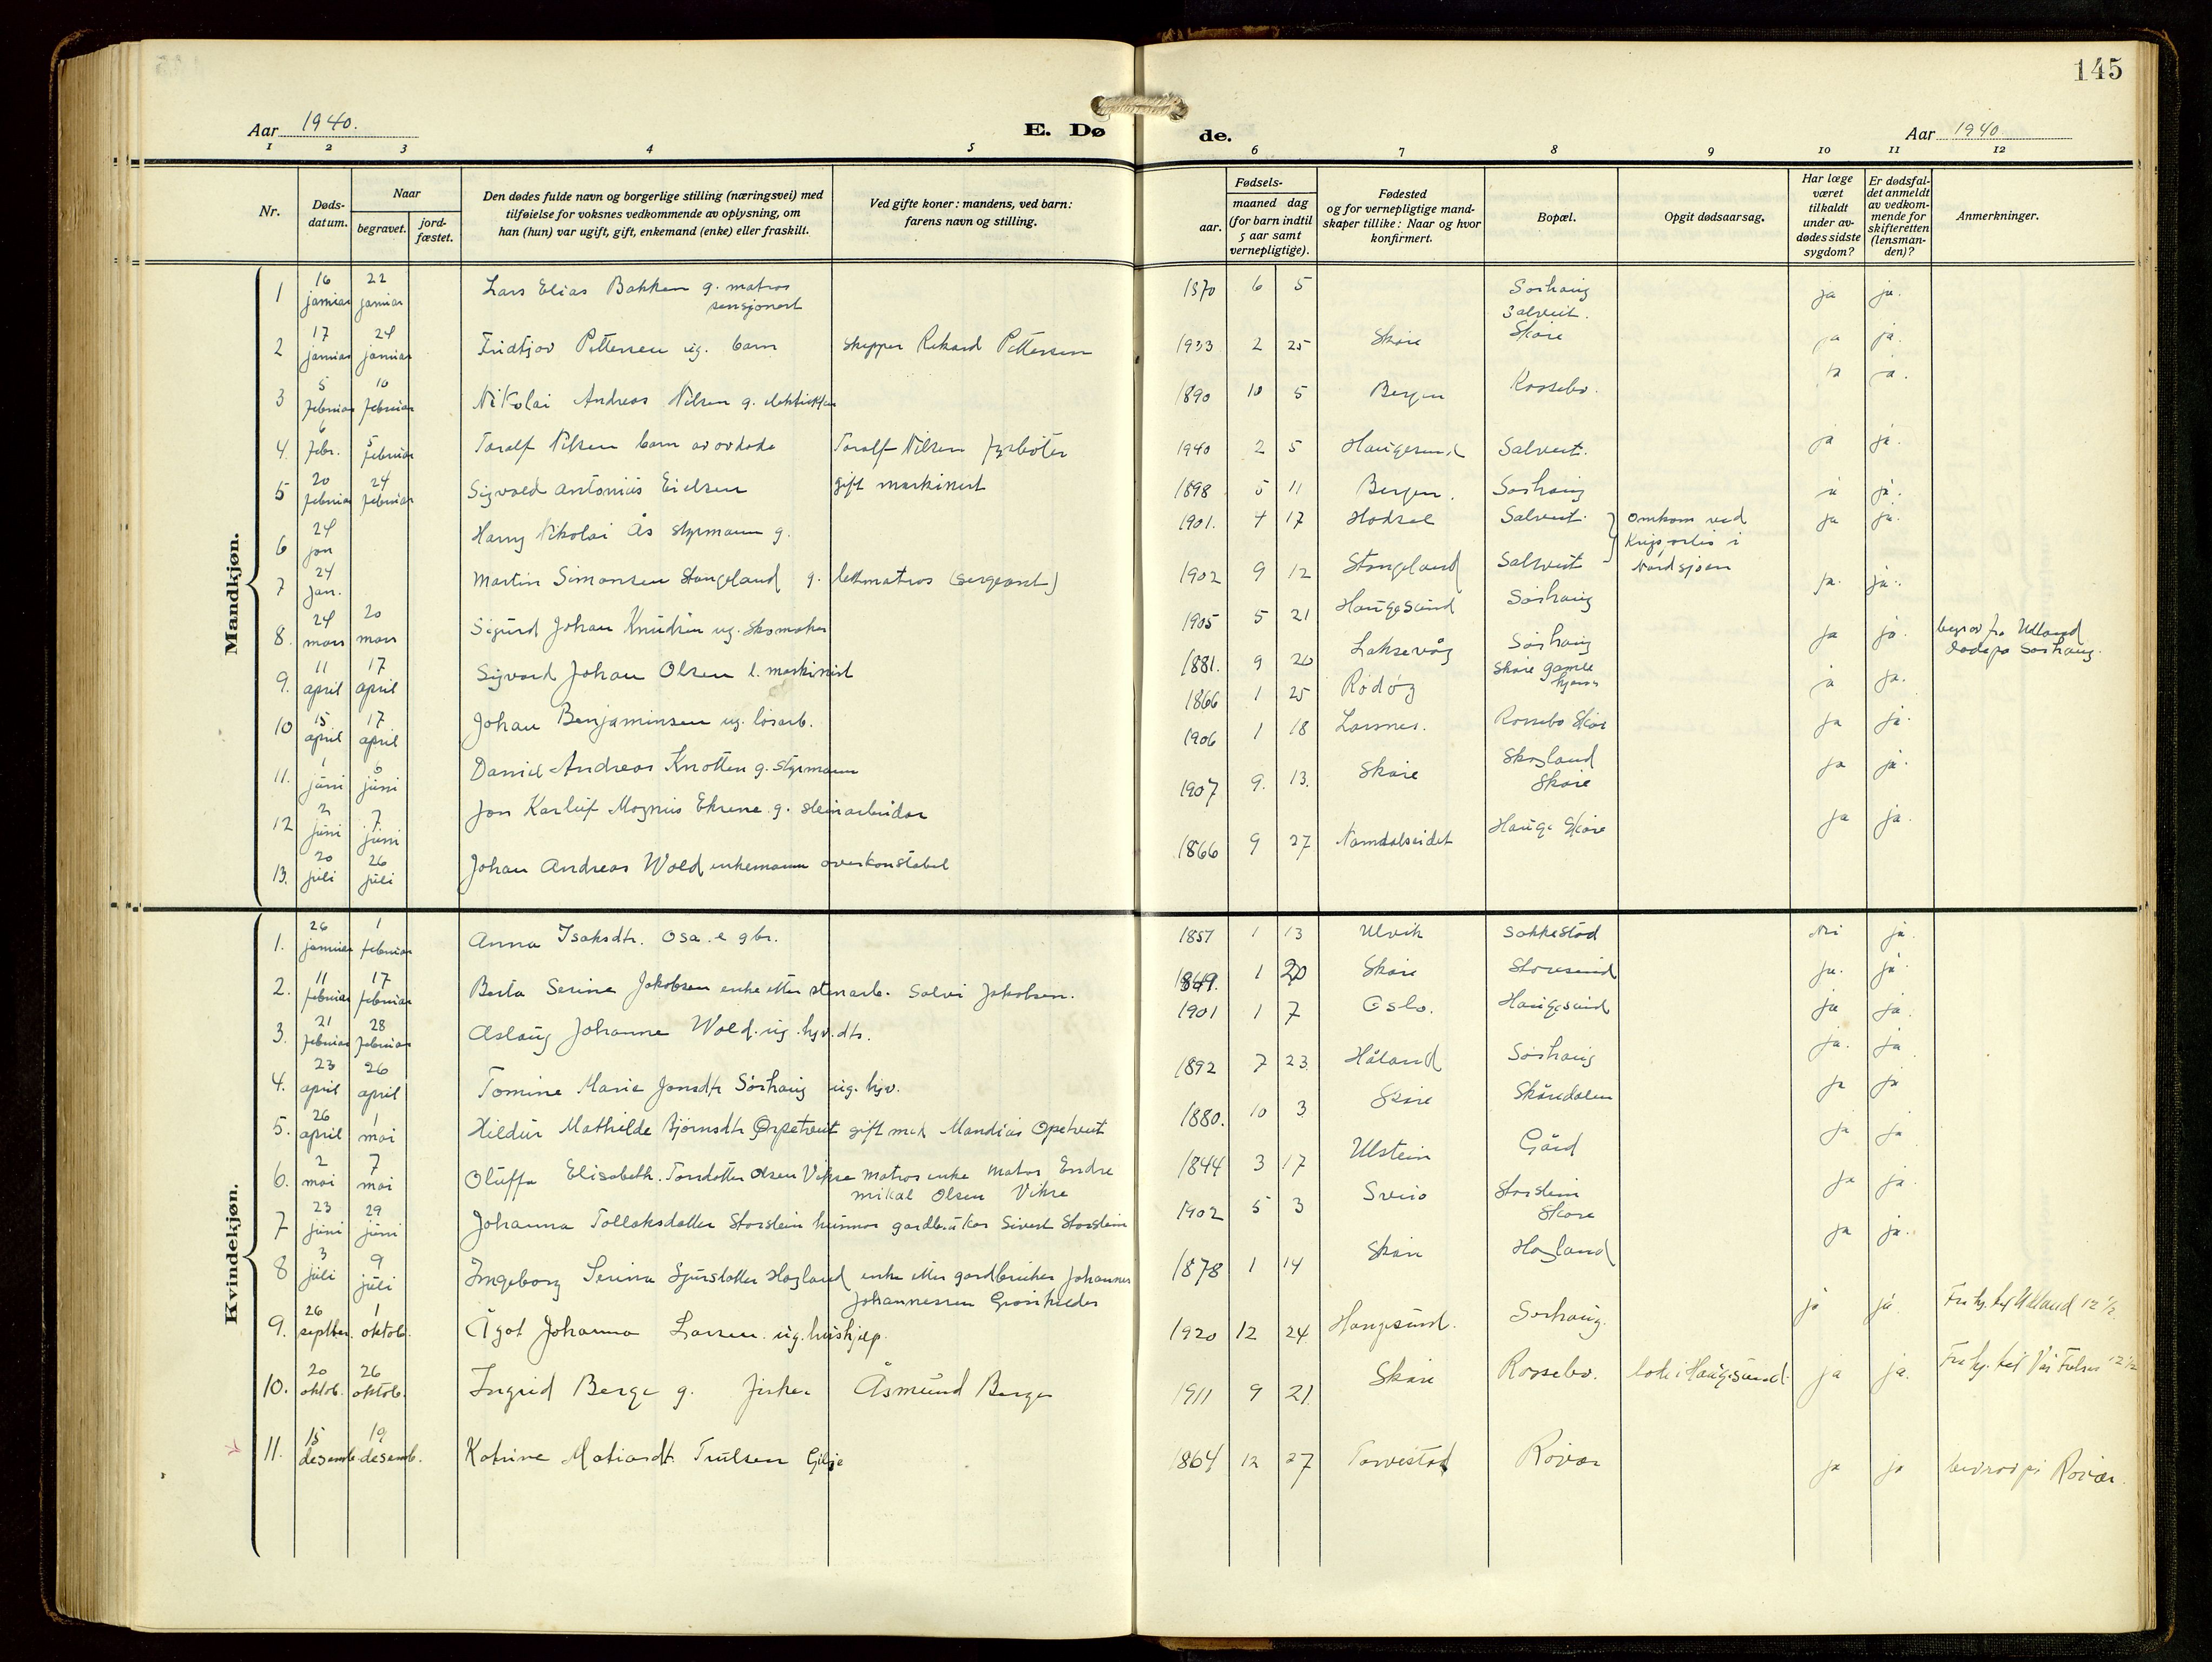 145
Aar 1940.
E. Dø de.
Aar 1940
1 2 3 4 5 6 7 8 9 10 11 12
Nr.
Døds-
datum.
Naar
begravet.
jord-
fæstet.
Den dødes fulde navn og borgerlige stilling (næringsvei) med
tilføielse for voksnes vedkommende av oplysning, om
han (hun) var ugift, gift, enkemand (enke) eller fraskilt.
Ved gifte koner: mandens, ved barn:
farens navn og stilling.
Fødsels-
aar.
maaned dag
(for barn indtil
5 aar samt
vernepligtige).
Fødested
og for vernepligtige mand-
skaper tillike: Naar og hvor
konfirmert.
Bopæl.
Opgit dødsaarsag.
Har læge
været
tilkaldt
under av-
dødes sidste
sygdom?
Er dødsfal-
det anmeldt
av vedkom-
mende for
skifteretten
(lensman-
den)?
Anmerkninger.
Mandkjøn.
1 16 januar 22 januar Lars Elias Bakken g. matros 1870 6 5 Sørhaug ja ja.
pensjonert Salveit.
2 17 januar 24 januar Fridtjov Pettersen ug. barn skipper Rikard Pettersen 1933 2 25 Skåre Skåre ja ja.
3 5 februar 10 februar Nikolai Andreas Nilsen g. elektriker 1890 10 5 Bergen Rossebø. ja ja.
4. 6 febr. 5 februar Toralf Nilsen barn av ovdode Toralf Nilsen fyrbøter 1940 2 5 Haugesund Salveit. ja ja.
5 20 februar 24 februar Sigvald Antonius Eielsen gift maskinist 1898 5 11 Bergen. Sørhaug ja ja.
6 24 jan Harry Nikolai Ås styrmann g. 1901. 4 17 Hadsel Salveit. Omkom ved ja ja.
Krigsforlis i
7 24 jan. Martin Simonsen Stangeland g. lettmatros (sergeant) 1902 9 12 Stangeland Salveit Nordsjøen ja. ja.
8. 24 mars 20 mars Sigurd Johan Knudsen ug. skomaker 1905 5 21 Haugesund Sørhaug ja ja. begrov fra Udland
døde på Sørhaug.
9. 11 april 17 april Sigvard Johan Olsen l. maskinist 1881. 9 20 Laksevåg Sørhaug ja ja.
10 15 april 17 april Johan Benjaminsen ug. løsarb. 1866 1 25 Rødøy Skåre gamle
hjem ja ja.
11. 1 juni 6 juni Daniel Andreas Knotten g. styrmann 1906 1 18 Larsnes. Rossebø Skåre ja ja.
12 2 juni 7 juni Jon Karluf Magnus Ekrene g. steinarbeider 1907 9. 13. Skåre Skogland
Skåre ja ja.
13. 20 juli 26 juli Johan Andreas Wold enkemann overkonstabel 1866 9 27 Namdalseidet Hauge Skåre
Kvindekjøn.
1. 26 januar 1 februar Anna Isaksdtr. Osa e gbr. 1857 1 13 Ulvik Sakkestad Nei ja.
2. 11 februar 17 februar Berta Serine Jakobsen enke etter stenarb. Salvi Jakobsen. 1849. 1 20 Skåre Storesund ja. ja.
3. 21 februar 28 februar Aslaug Johanne Wold. ug. hjv. dtr. 1901 1 7 Oslo. Haugesund ja ja.
4. 23 april 26 april Tomine Marie Jonsdtr Sørhaug ug. hjv. 1892 7 23 Håland Sørhaug ja. ja
5. 26 april 1 mai Hildur Mathilde Bjørnsdtr Opetveit gift med Mandius Opetveit 1880. 10 3 Skåre Skåredalen ja ja
6. 2 mai 7 mai Oluffa Elisabeth. Tordotter Olsen Vikse matros enke matros Endre 1844 3 17 Ulstein Gård ja ja
mikal Olsen Vikse
7 23 juni 29 juni Johanna Tollaksdatter Storstein husmor gardbruker Sivert Storstein 1902 5 3 Sveio Storstein
Skåre ja ja.
8 3 juli 9 juli Ingeborg Serina Sjursdatter Hagland enke etter gardbruker Johannes 1878 1 14 Skåre Hagland ja ja.
Johannessen
9. 26 septber. 1 oktob. Ågot Johanna Larsen. ug. hushjelp. 1920 12 24 Haugesund. Sørhaug. ja ja.
10. 20 oktob. 26 oktob. Ingrid Berge g. fisker Åsmund Berge 1911 9 21 Skåre Rossebø. døde i Haugesund. ja ja.
11. 15 desemb. 19 desemb. Katrine Matiasdtr. Trulsen Gilje 1864 12 27 Torvestad Røvær ja ja på Røvær.